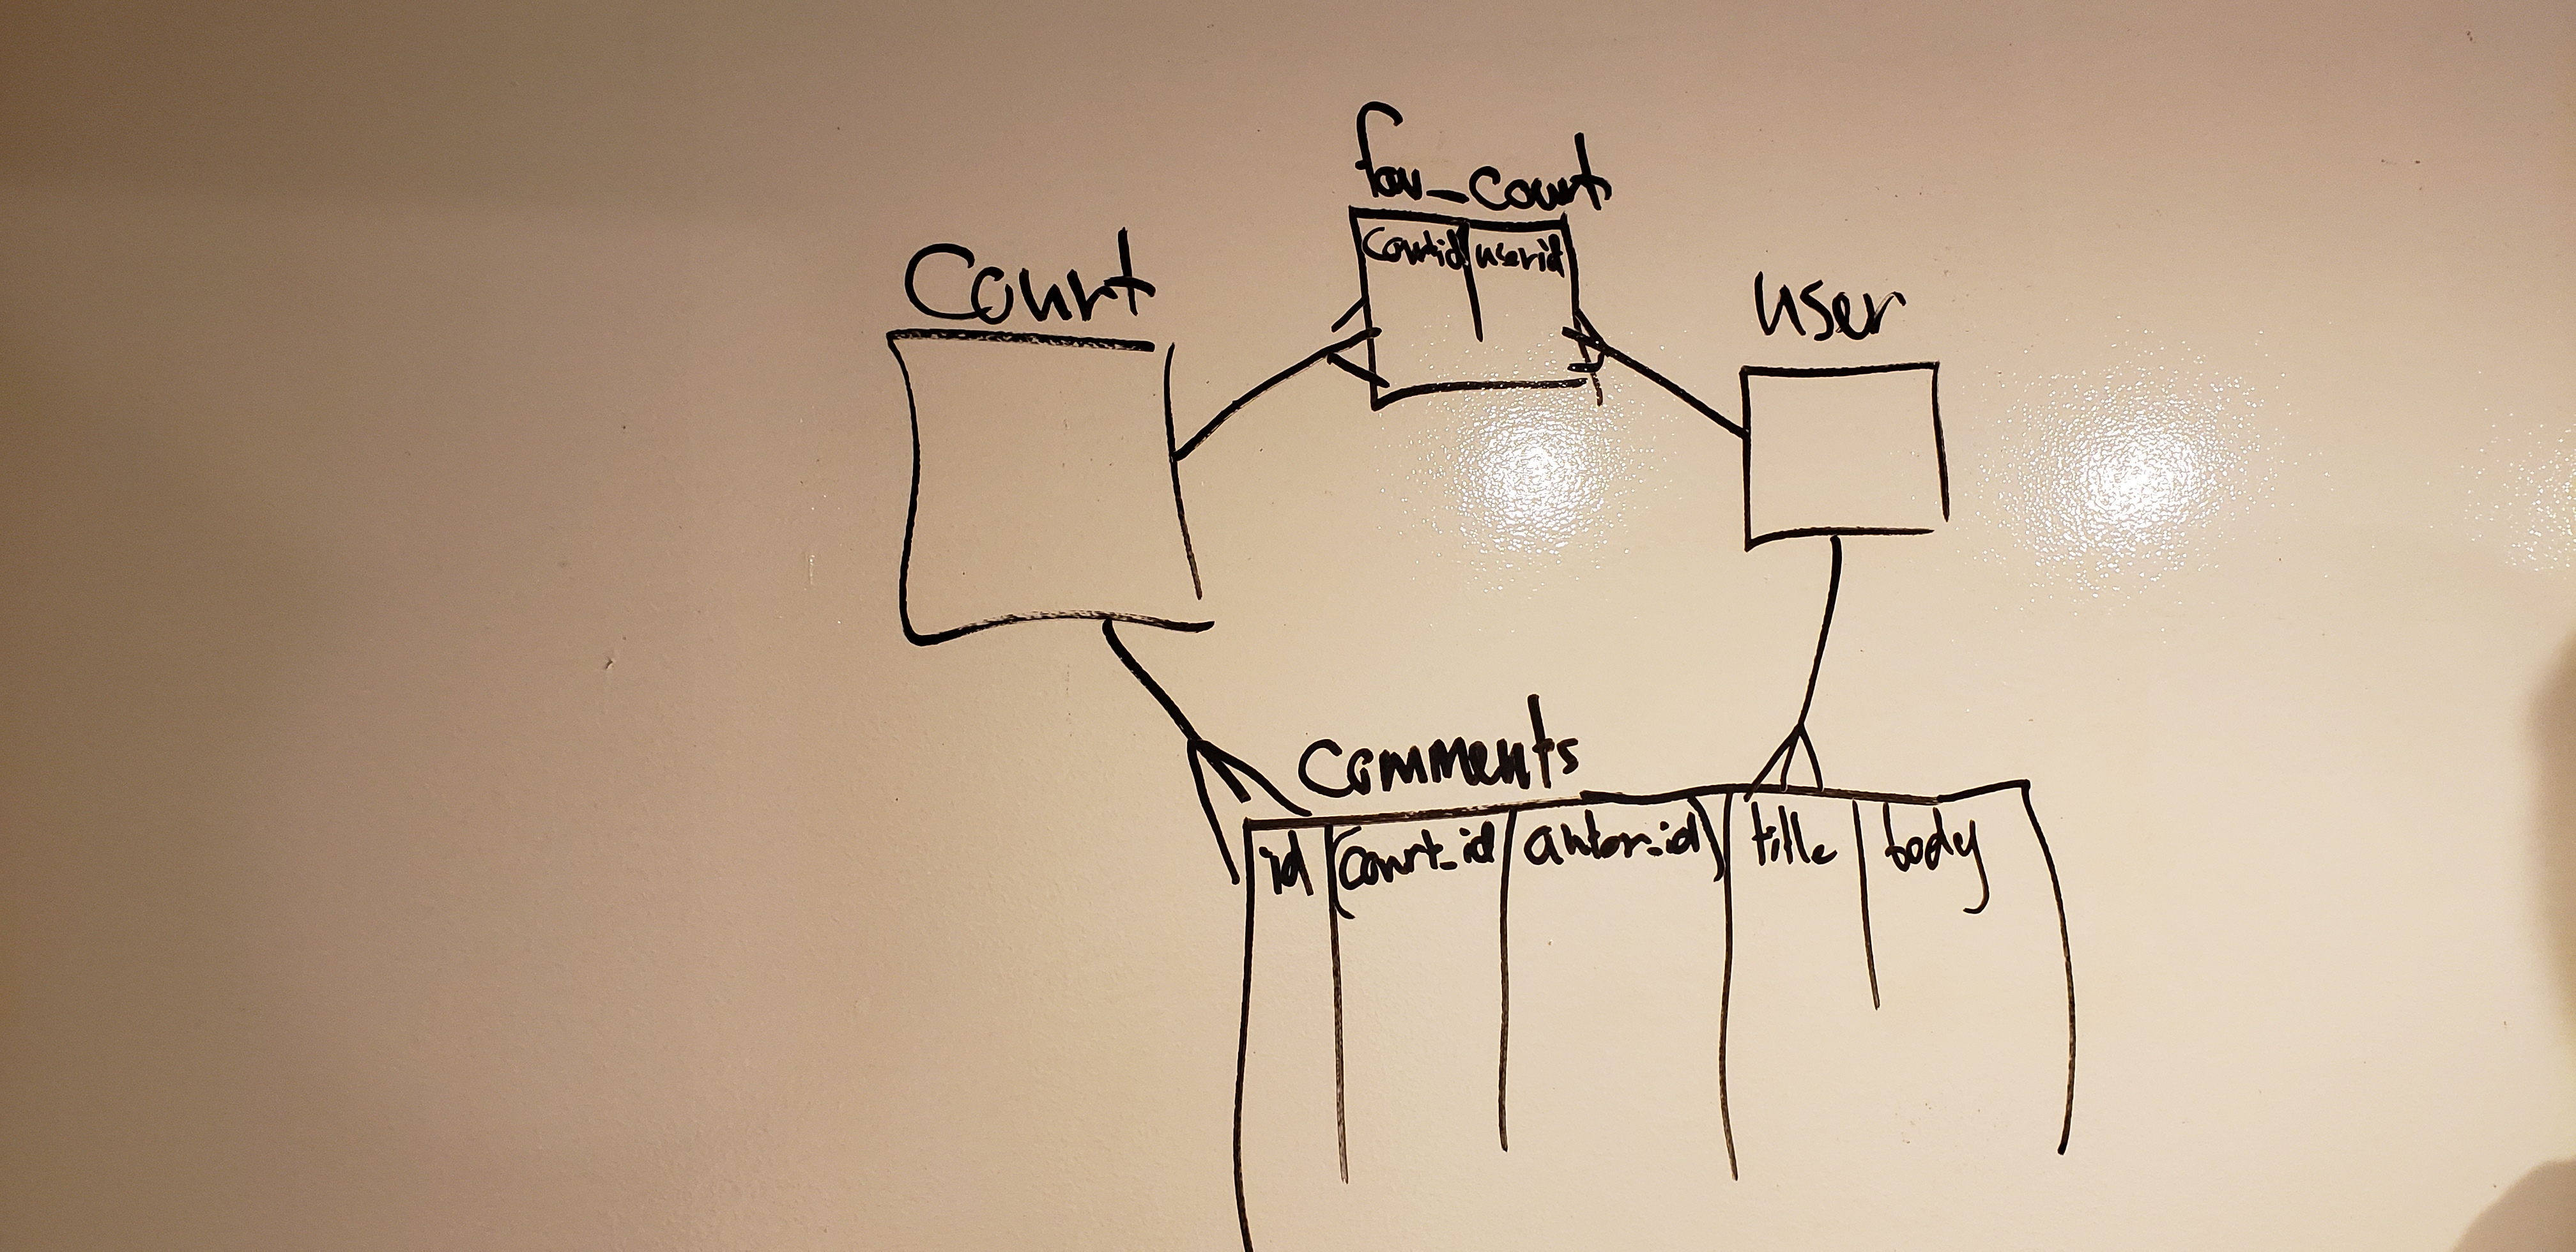 fav_court
courtid userid
Court
user
comments
id (court_id autor_id) title body